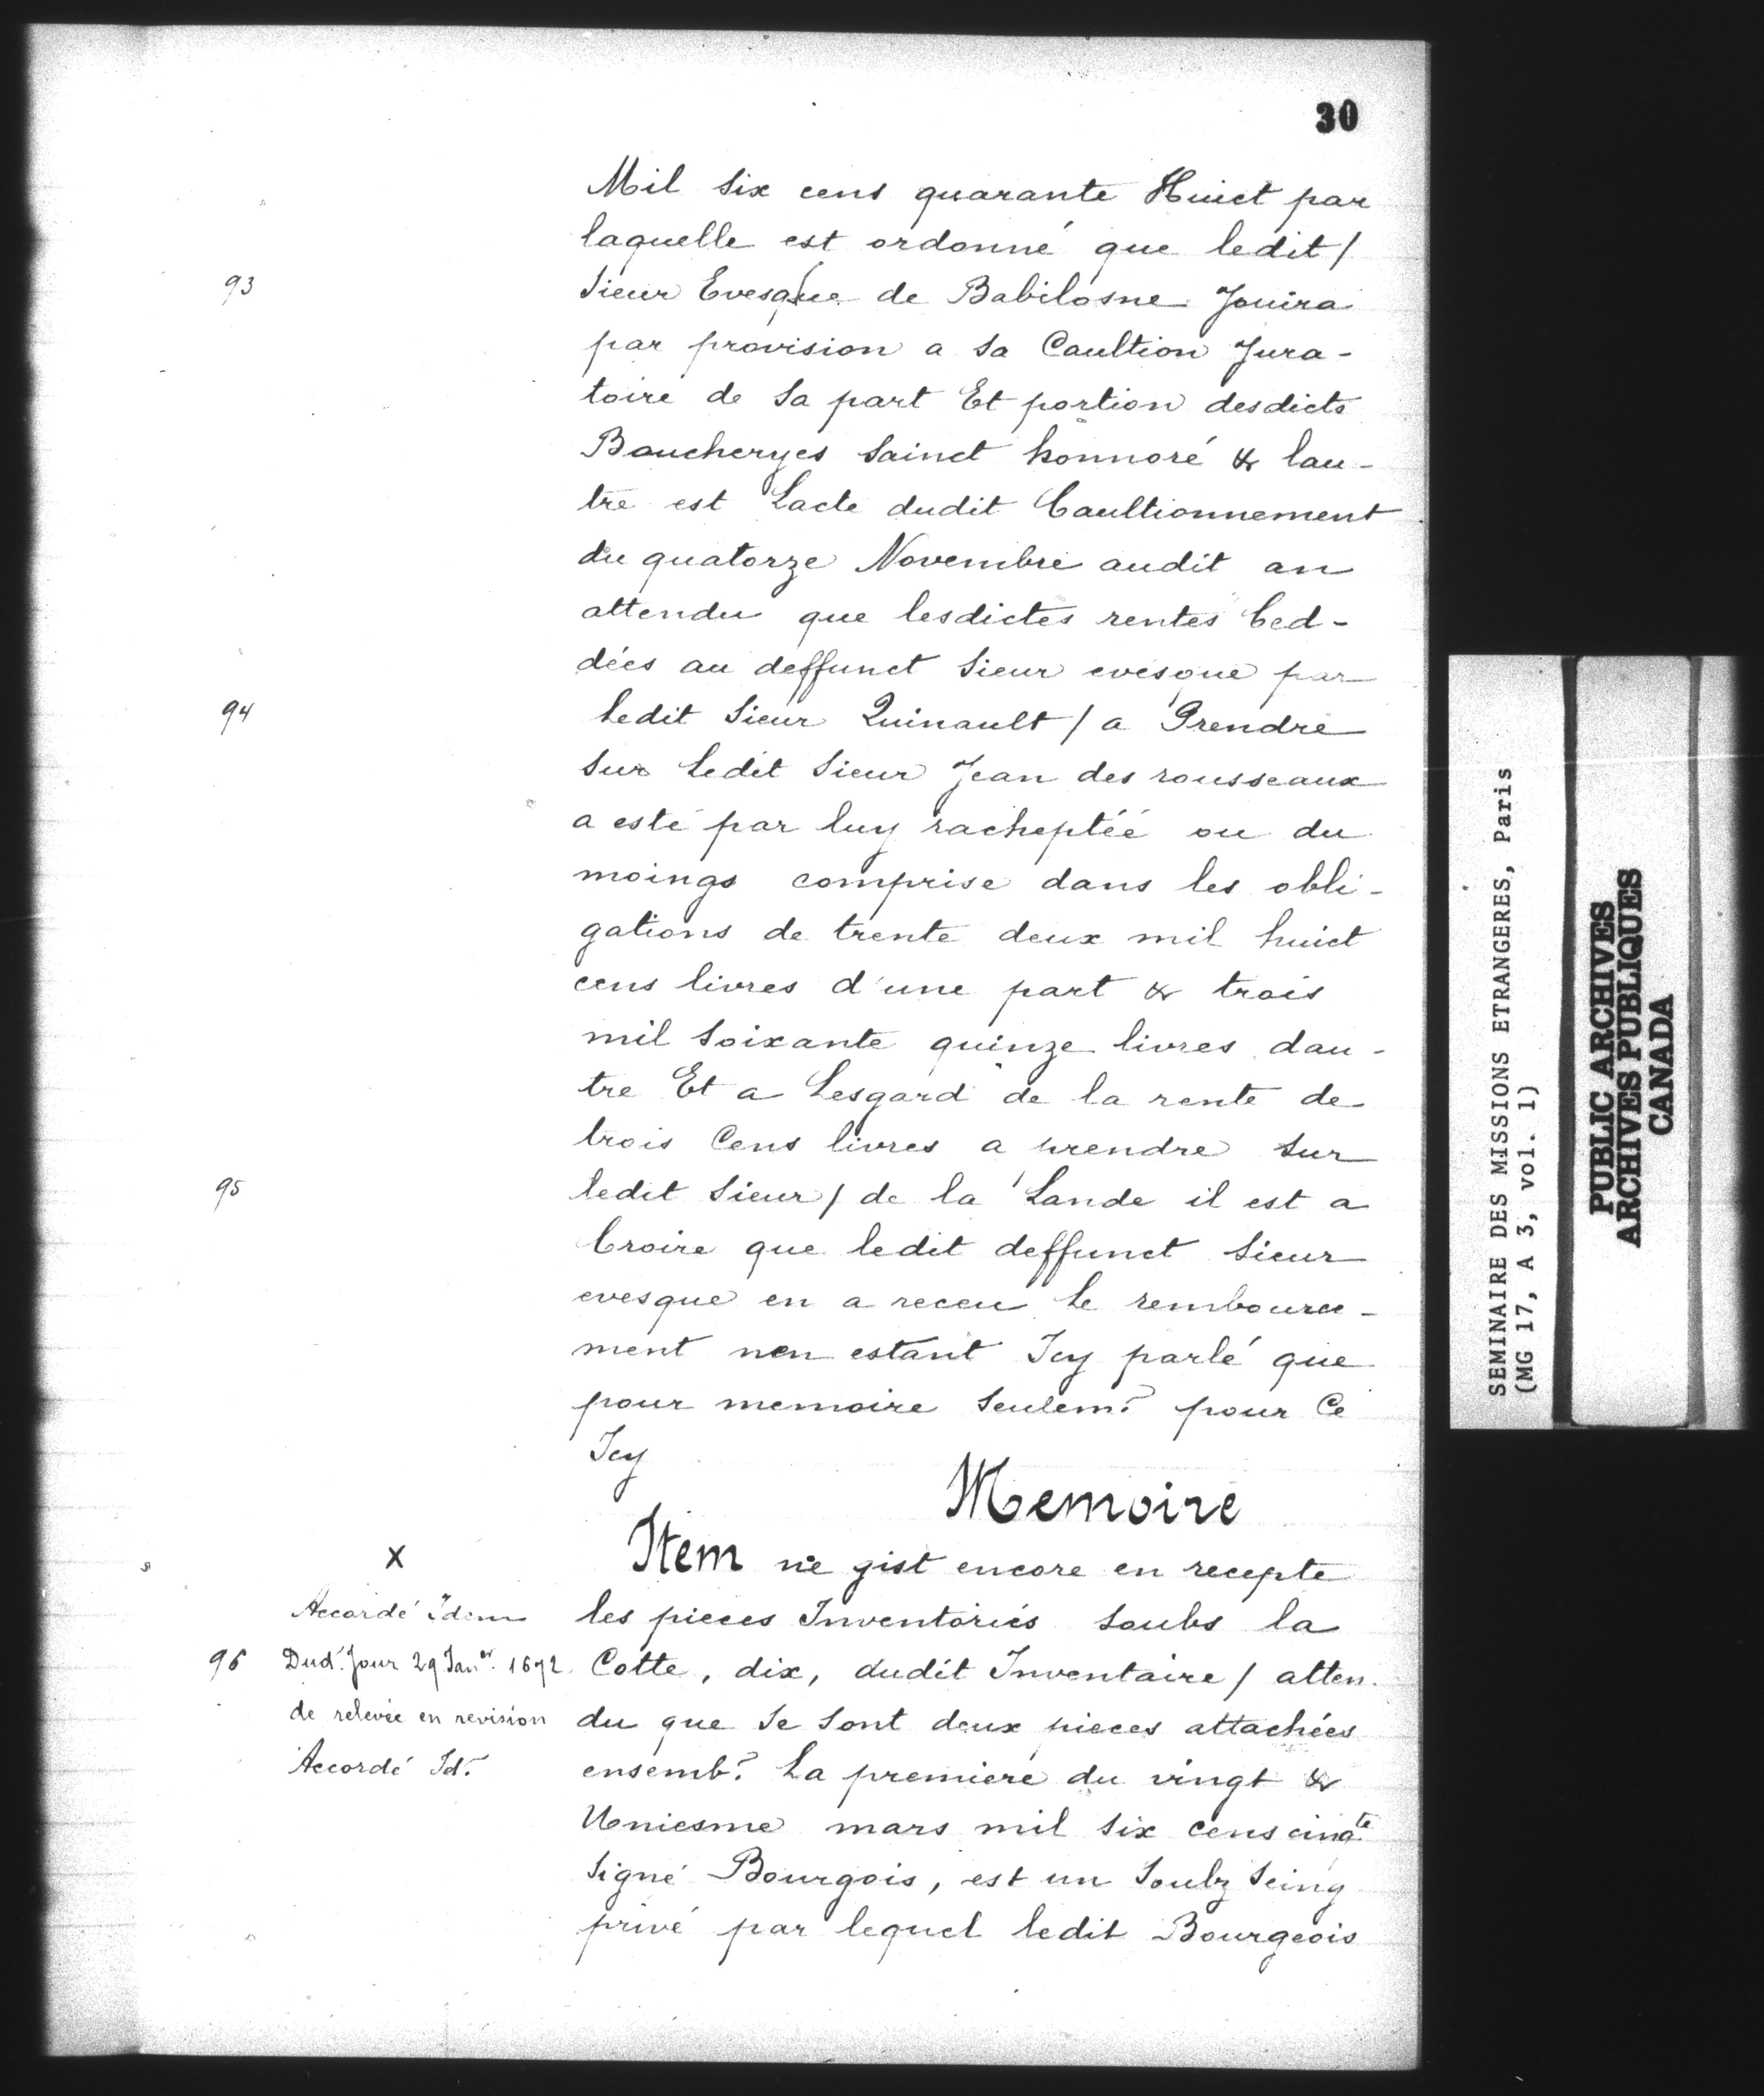 30
Mil six cens quarante Huict par
laquelle est ordonné que ledit /
93
Sieur Evesque de Babilosne Jouira
par provision a sa Caultion Jura-
toire de sa part Et portion desdicts
Boucheryes Sainct honnoré & lau-
tre est Lacte dudit Caultionnement
du quatorze Novembre audit an
attendu que lesdictes rentes Ced-
dées au deffunct Sieur evesque par
94
ledit Sieur Quinault / a Prendre
sur ledit Sieur Jean des rousseaux
a esté par luy racheptéé ou du
moings comprise dans les obli-
gations de trente deux mil huict
cens livres d'une part & trois
mil soixante quinze livres dau-
tre Et a Lesgard de la rente de
trois Cens livres a prendre sur
95
ledit Sieur / de la Lande il est a
Croire que ledit deffunct Sieur
evesque en a receu le rembource-
ment nen estant Icy parlé que
pour memoire seulemt pour Ce
Icy
Memoire
Item ne gist encore en recepte
X
Accordé Idem
les pieces Inventoriés soubs la
96
Dud. Jour 29 Janer. 1672
Cotte, dix, dudit Inventaire / atten-
de relevée en revision
du que se sont deux pieces attachées
Accordé Id.
ensemb. La premiere du vingt &
Uniesme mars mil six cens cinqte
Signé Bourgois, est un Soulz Seing
privé par lequel ledit Bourgeois
SEMINAIRE DES MISSIONS ETRANGERES, Paris
(MG 17, A 3, vol. 1)
PUBLIC ARCHIVES
ARCHIVES PUBLIQUES
CANADA